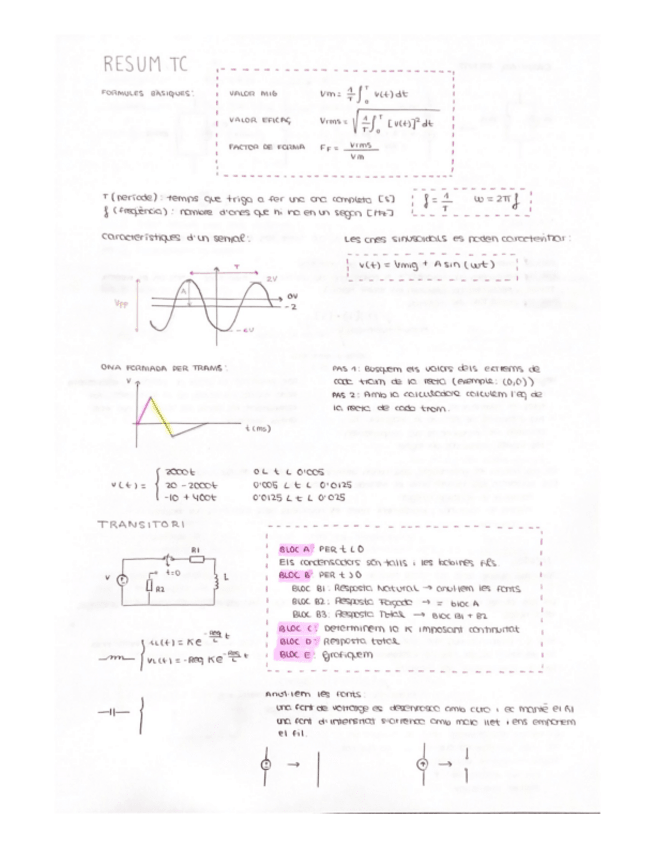 RESUM TC
FORMULES BÀSIQUES:
VALOR MIG Vm = 1/T ∫₀ᵀ v(t) dt
VALOR EFICAÇ Vrms = √(1/T ∫₀ᵀ [v(t)]² dt)
FACTOR DE FORMA FF = Vrms/Vm
T (període): temps que triga a fer una ona completa [s]
f (freqüència): nombre d'ones que hi ha en un segon [Hz]
f = 1/T ω = 2π f
Característiques d'un senyal:
Les ones sinusoidals es poden caracteritzar:
v(t) = Vmig + A sin (ωt)
T
2V
Vpp
A
0V
-2
-6V
ONA FORMADA PER TRAMS:
V
t(ms)
PAS 1: Busquem els valors dels extrems de
cada tram de la recta (exemple: (0,0))
PAS 2: Amb la calculadora calculem l'eq de
la recta de cada tram.
v(t) =
2000t 0 < t < 0'005
20 - 2000t 0'005 < t < 0'0125
-10 + 400t 0'0125 < t < 0'025
TRANSITORI
R1
V
t=0
R2
L
BLOC A: PER t < 0
Els condensadors són talls i les bobines fils.
BLOC B: PER t > 0
BLOC B1: Resposta Natural → anul·lem les fonts
BLOC B2: Resposta Forçada → = bloc A
BLOC B3: Resposta Total → BLOC B1 + B2
BLOC C: Determinem la K imposant continuïtat
BLOC D: Resposta total
BLOC E: Grafiquem
iL(t) = K e^(-Req/L t)
vL(t) = -Req K e^(-Req/L t)
Anul·lem les fonts:
una font de voltatge es
una font d'intensitat
el fil.